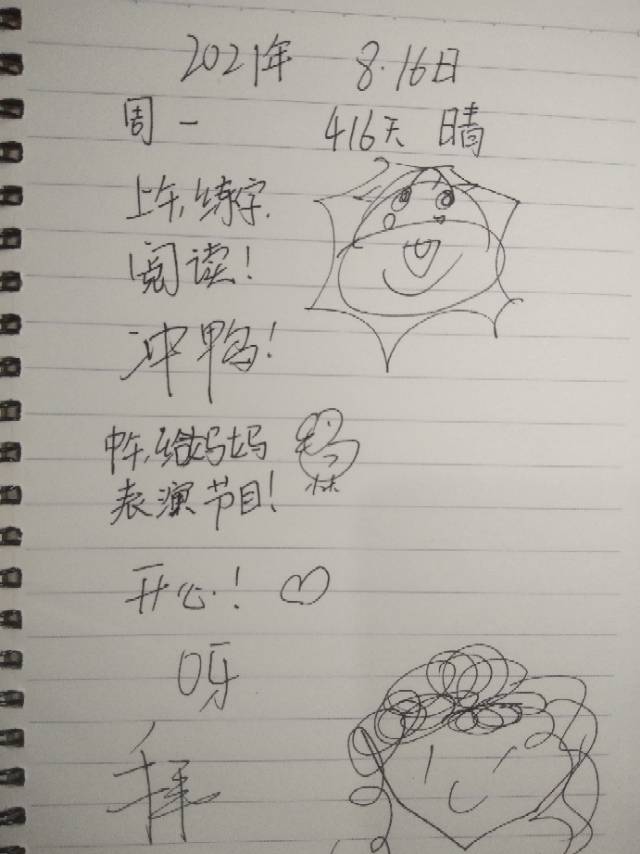 2021年 8.16日
周一 416天 晴
上午,练字,
阅读!
冲鸭!
中午,给妈妈
表演节目!
开心!
呀